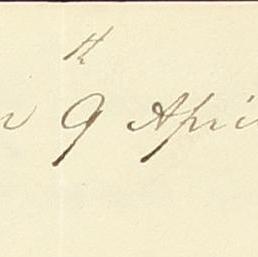 th
9 Apri